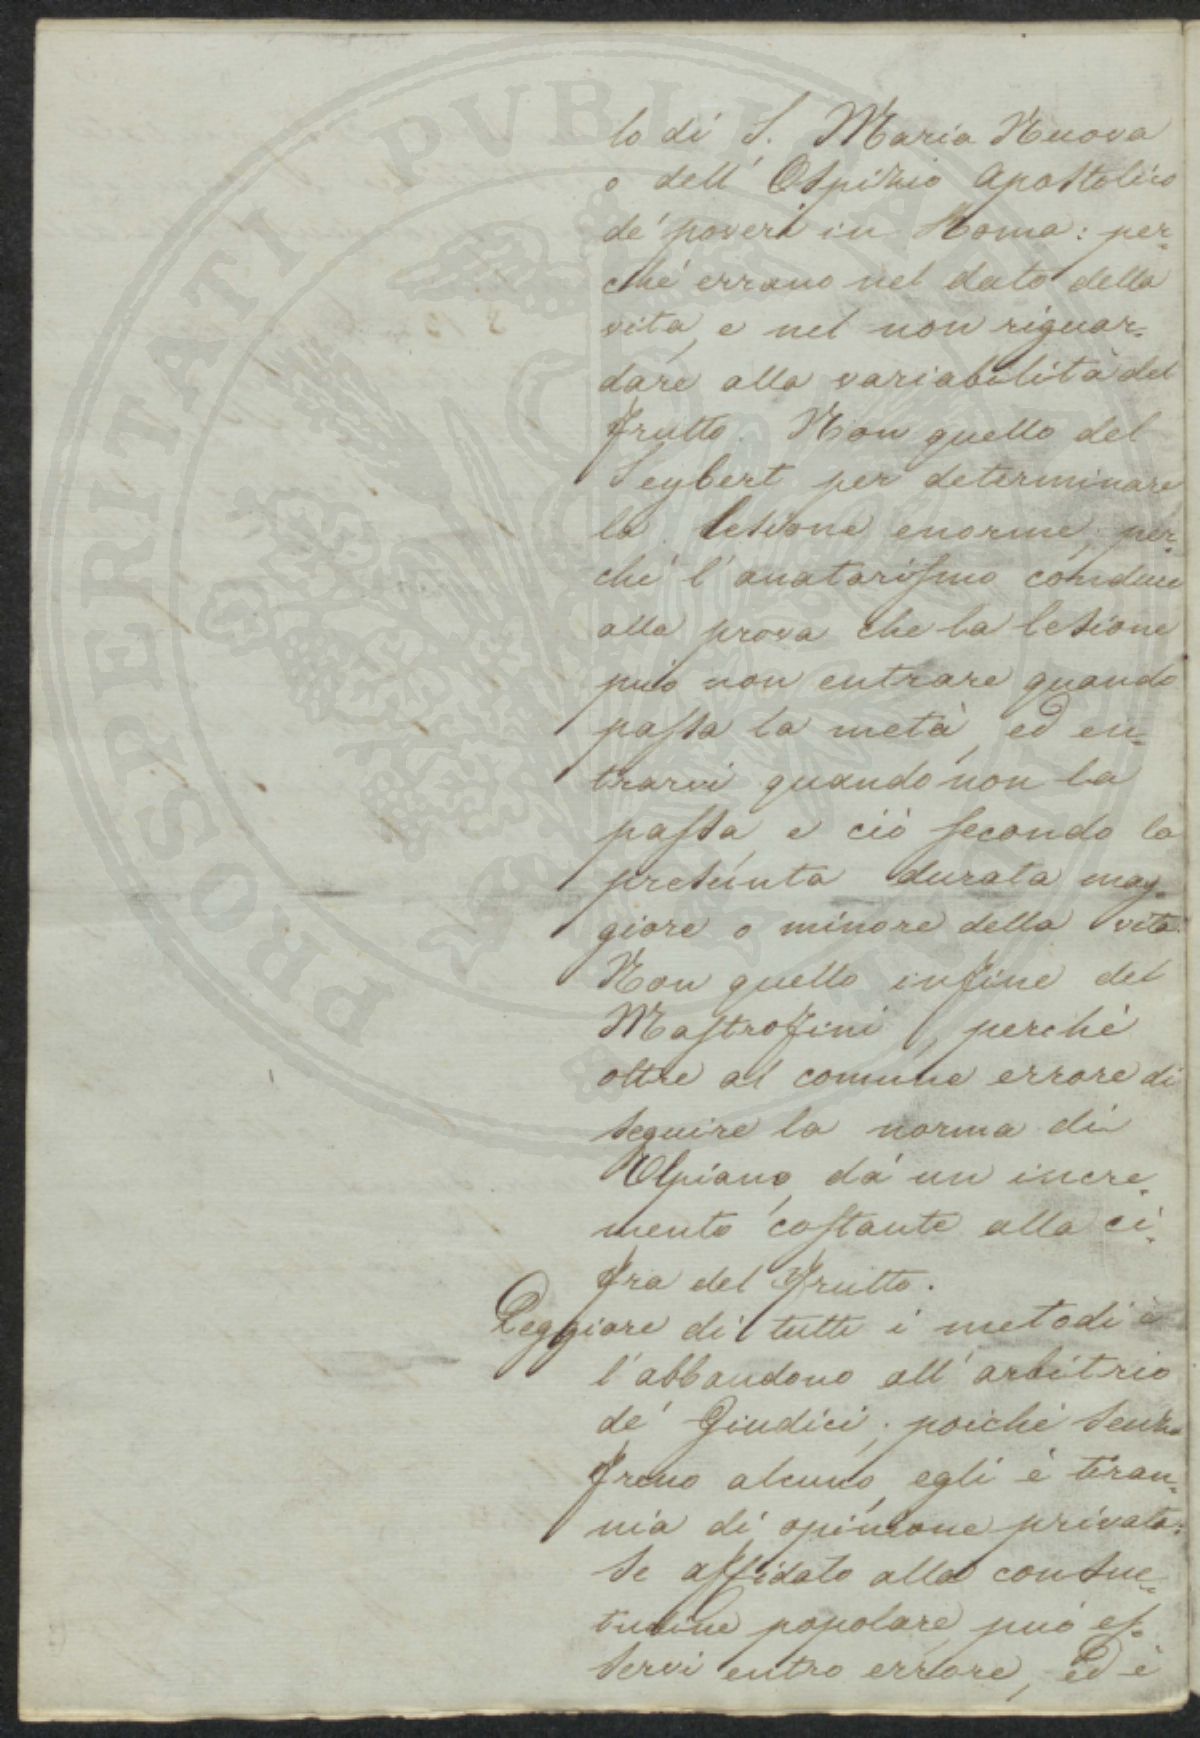 lo di S. Maria Nuova
o dell' Ospizio Apostolico
de' poveri in Roma: per=
ché errano nel dato della
vita, e nel non riguar=
dare alla variabilità del
frutto. Non quello del
Seybert per determinare
la lesione enorme; per=
ché l'anatocismo conduce
alla prova che la lesione
può non entrare quando
passa la metà, ed en=
trarvi quando non la
passa, e ciò secondo la
presunta durata mag=
giore o minore della vita.
Non quello infine del
Mastrofini, perchè
oltre al comune errore di
seguire la norma di
Ulpiano, dà un incre=
mento costante alla ci=
fra del frutto.
Peggiore di tutti i metodi è
l'abbandono all'arbitrio
de' Giudici; poichè senza
freno alcuno, egli è tiran=
nia di opinione privata:
se affidato alla consue=
tudine popolare, può es=
servi entro errore, ed è
PROSPERITATI PVBLICAE AVGENDAE